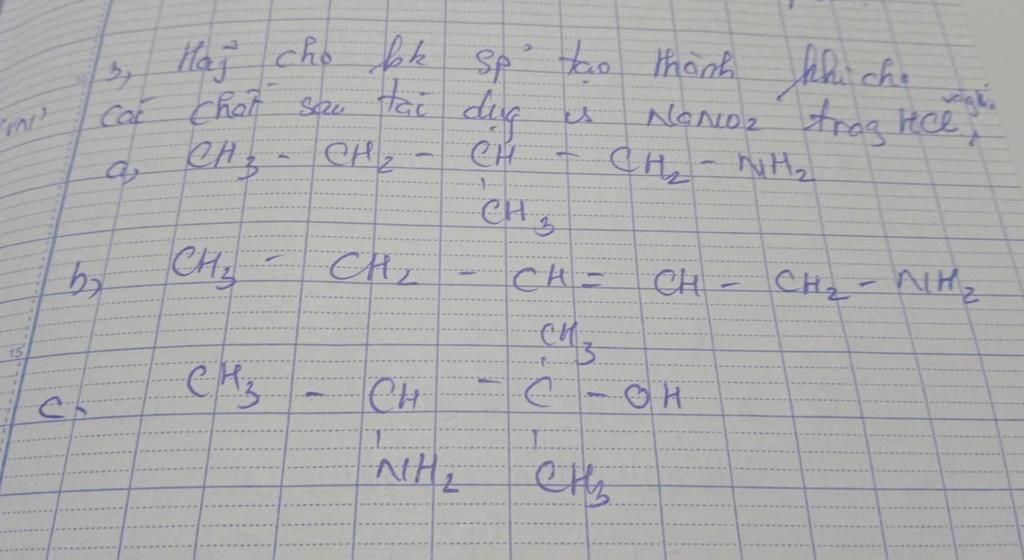 3, Hãy cho bk sp' tạo thành khi cho
các chất sau tác dụg vs NaNO2 trog HCl,
a, CH3 - CH2 - CH - CH2 - NH2
CH3
b, CH3 - CH2 - CH = CH - CH2 - NH2
CH3
c, CH3 - CH - C - OH
NH2 CH3